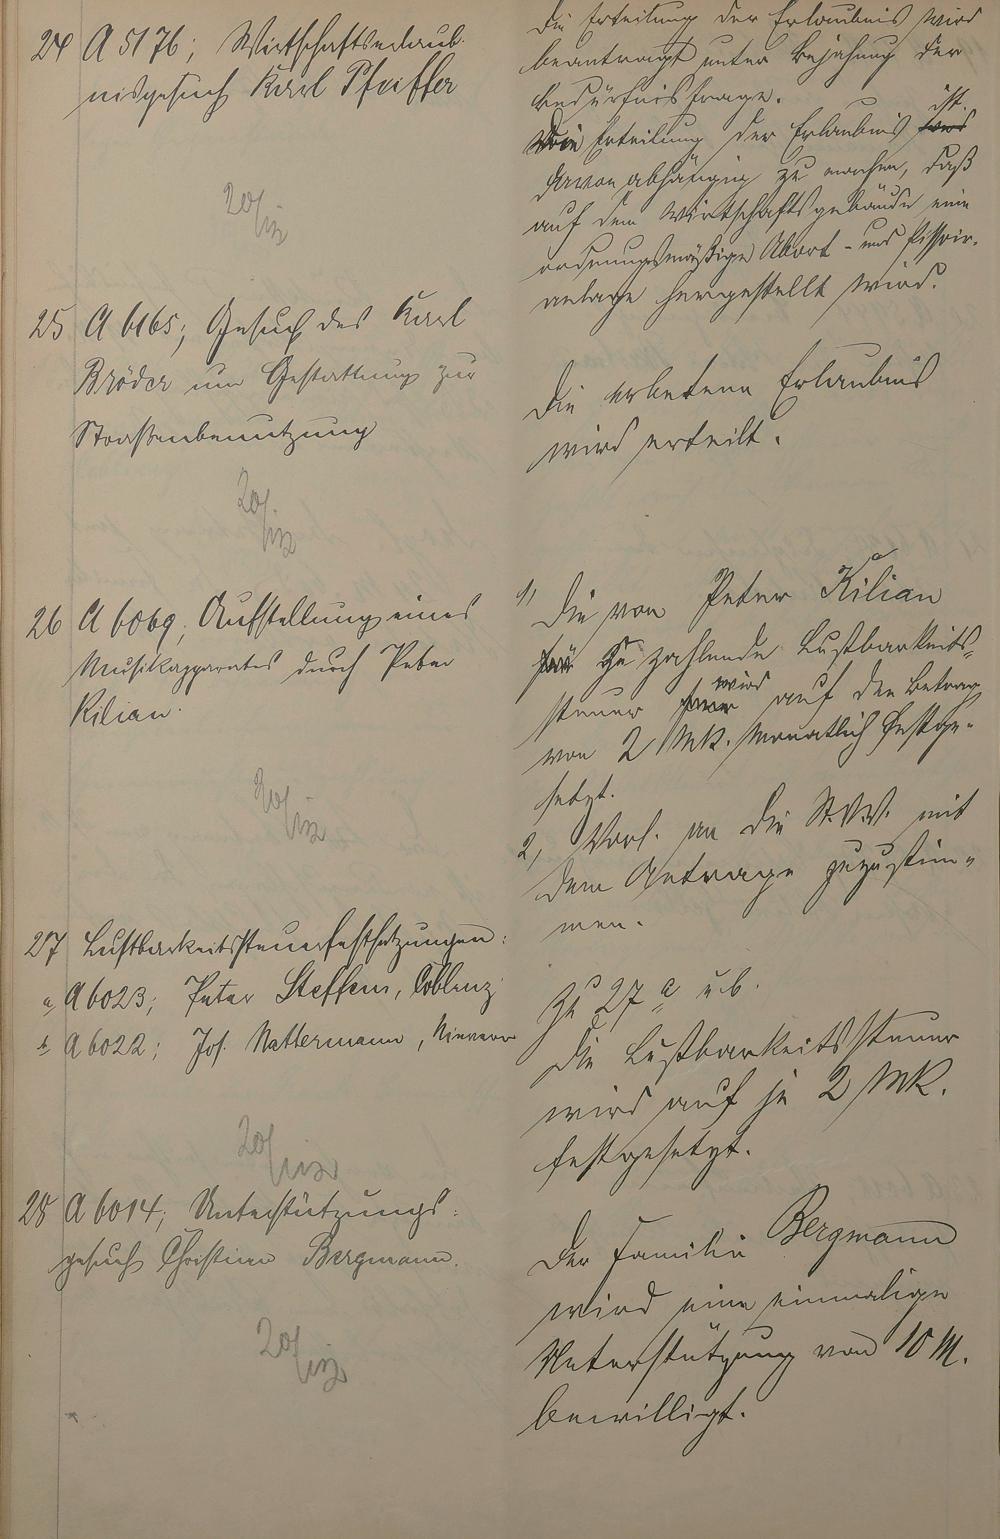 24 A 5176; Wirtschaftserlaub-
nisgesuch Karl Pfeiffer
Die Erteilung der Erlaubnis wird
beantragt unter Bejahung der
Bedürfnisfrage.
ist
Die Erteilung der Erlaubnis
davon abhängig zu machen, daß
auf dem Wirtschaftsgebäude eine
ordnungsmäßige Abort- und Pissoir-
anlage hergestellt wird.
20/
25 A 6165; Gesuch des Karl
Bröder um Gestattung zur
Straßenbenutzung
Die erbetene Erlaubnis
wird erteilt.
20/
26 A 6069; Aufstellung eines
Musikapparates durch Peter
Kilian.
1, Die von Peter Kilian
zu zahlende Lustbarkeits-
steuer wird auf den Betrag
von 2 Mk. monatlich festge-
setzt.
2, Vorl. an die St.V.V. mit
dem Antrage zuzustim-
men.
20/
27 Lustbarkeitssteuerfestsetzungen:
a, A 6023; Peter Steffens, Coblenz
b A 6022; Jos. Nattermann, Nievern
Zu 27 a u. b.
Die Lustbarkeitssteuer
wird auf je 2 Mk.
festgesetzt.
20/
28 A 6014; Unterstützungs-
gesuch Christian Bergmann.
Der Familie Bergmann
wird eine einmalige
Unterstützung von 10 M.
bewilligt.
20/